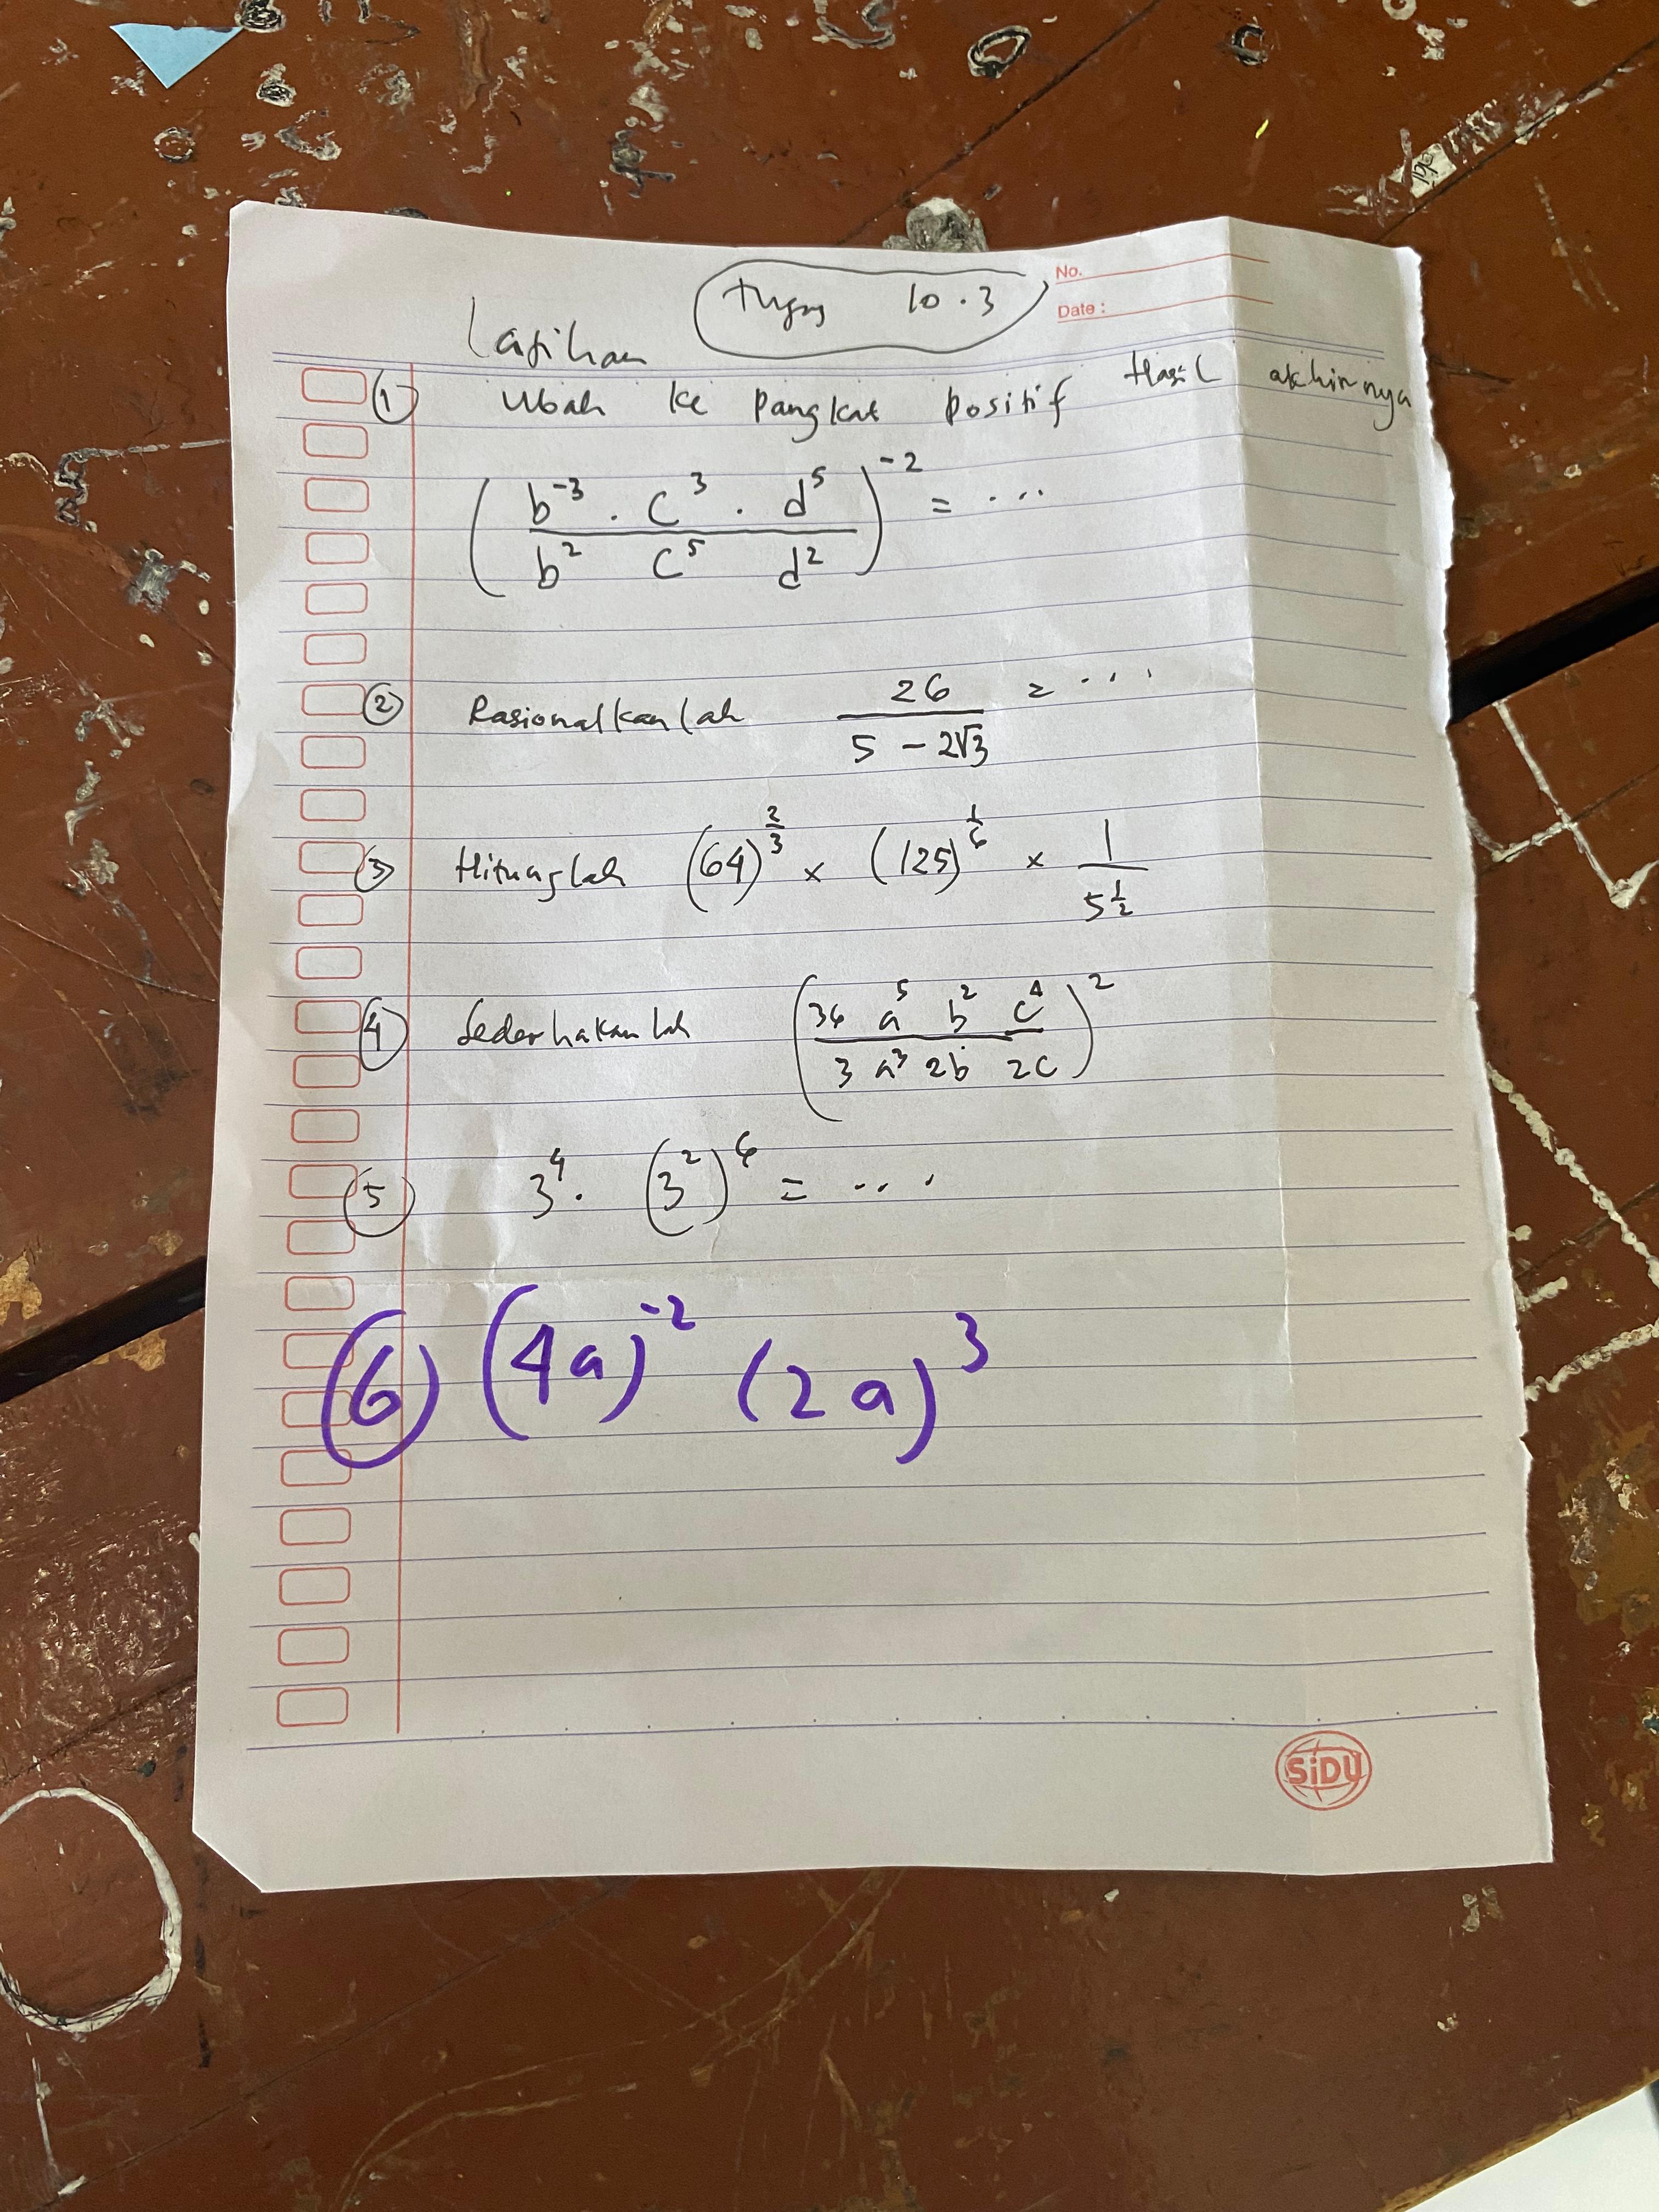 Tugas 10.3
No.
Date :
Latihan
① Ubah ke pangkat positif Hasil akhirnya
(b⁻³ . c³ . d⁵ / b² c⁵ d²)⁻² = ...
② Rasionalkanlah 26 / (5 - 2√3) = ...
③ Hitunglah (64)^(2/3) × (125)^(1/6) × 1 / 5^(1/2)
④ Sederhakanlah (36 a⁵ b² c⁴ / 3 a³ 2b 2c)²
⑤ 3⁴ . (3²)⁶ = ...
⑥ (4a)⁻² (2a)³
SiDU